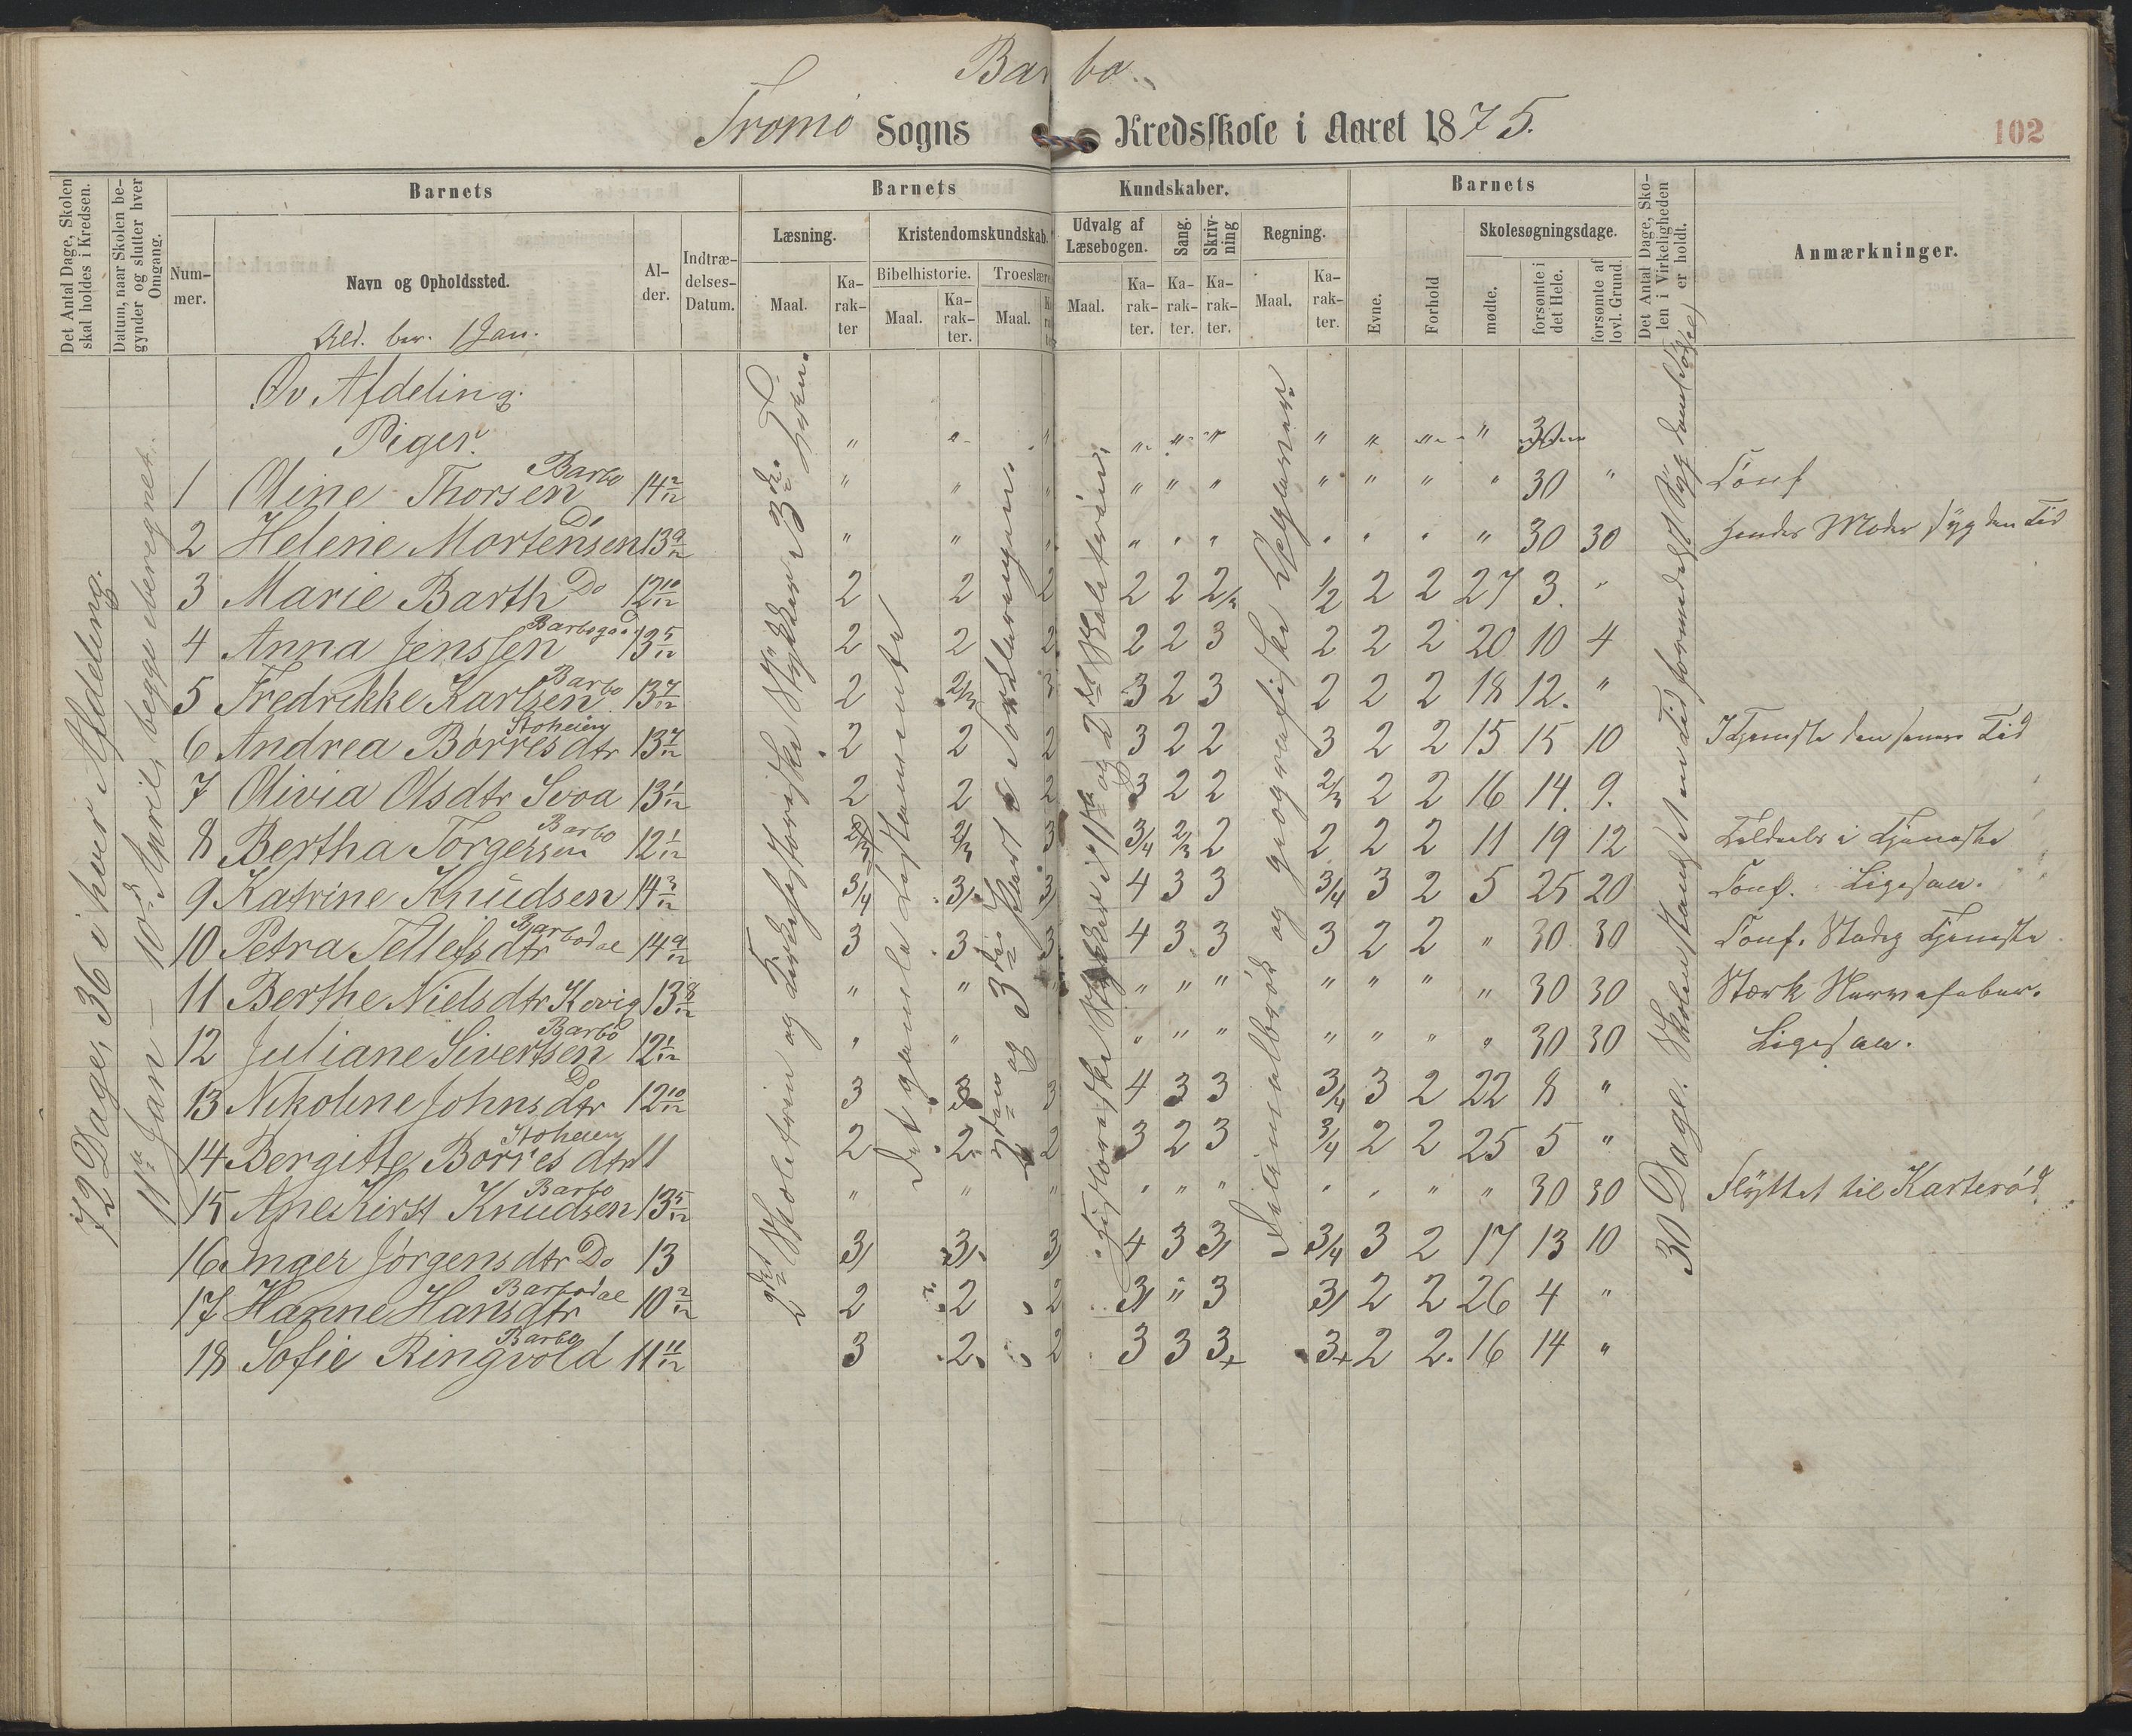 Barbo.
Tromø Sogns Kredsskole i Aaret 1875.
102
Det Antal Dage, Skolen skal holdes i Kredsen.
Datum, naar Skolen begynder og slutter hver Omgang.
Barnets
Nummer.
Navn og Opholdssted.
Ald. ber. 1 Jan.
Alder.
Indtrædelses-Datum.
Barnets Kundskaber.
Læsning.
Maal.
Karakter
Kristendomskundskab.
Bibelhistorie.
Maal.
Karakter.
Troeslære
Maal.
Udvalg af Læsebogen.
Maal.
Karakter.
Sang.
Karakter.
Skrivning
Karakter.
Regning.
Maal.
Karakter.
Barnets
Evne.
Forhold
Skolesøgningsdage.
mødte.
forsømte i det Hele.
forsømte af lovl. Grund.
Det Antal Dage, Skolen i Virkeligheden er holdt.
Anmærkninger.
72 Dage, 36 i hver Afdeling.
11te Jan – 10de April, begge iberegnet.
2det Skoletrin og Kirkehistoriske Stykker 3die Trin.
Det gamle Testamente
2den og 3die Part e Forklaringen.
Historiske Stykker i 1ste og 2det Skoletrin
Decimalbrøk og geografiske Opgaver
30 Dage. Skolen standset en Tid formedelst
Øv Afdeling.
Piger. " " " " " " " " " " 30
1 Oline Thorsen Barbo 14 2/12 " " " " " " " " " " 30 " Conf
2 Helene Mortensen Do 13 9/12 " " " " " " " " " " 30 30 Hendes Moder syg den Tid
3 Marie Barth Do 12 10/12 2 2 2 2 2 2/3 1/2 2 2 27 3. "
4 Anna Jenssen Barbogd 13 5/12 2 2 2 2 2 3 2 2 2 20 10 4
5 Fredrikke Karlsen Barbo 13 7/12 2 2/3 3 3 2 3 2 2 2 18 12. "
6 Andrea Børresdtr Stoheien 13 7/12 2 2 2 3 2 2 3 2 2 15 15 10 I Tjeneste den senere Tid
7 Olivia Olsdtr Svoa 13 1/12 2 2 2 3 2 2 2/3 2 2 16 14. 9.
8 Bertha Torgersen Barbo 12 1/12 2/3 2/3 3 3/4 2/3 2 2 2 2 11 19 12 Tildeels i Tjeneste
9 Katrine Knudsen 14 3/12 3/4 3/ 3/ 4 3 3 3/4 3 2 5 25 20 Conf. Ligesaa.
10 Petra Tellefsdtr Barbodal 14 9/12 3 3 3 4 3 3 3 2 2 " 30 30 Conf. Stadig Tjeneste
11 Berthe Nielsdtr Kovig 13 8/12 " " " " " " " " " " 30 30 Stærk Nervefeber.
12 Juliane Sivertsen Barbo 12 1/12 " " " " " " " " " 30 30 Ligesaa.
13 Nikoline Johnsdtr Do 12 10/12 3 3 3 4 3 3 3/4 3 2 22 8 "
14 Bergitte Børresdtr Stoheien 11 2 2 2 3 2 3 3/4 2 2 25 5 "
15 Ane Kirst Knudsen Barbo 13 5/12 " " " " " " " " " " 30 30 Flyttet til Karterød.
16 Inger Jørgensdtr Do 13 3/ 3/ 3/ 4 3 3/ 3/4 3 2 17 13 10
17 Hanne Hansdtr Barbodal 10 2/12 2 2 2 3/ " 3 3/ 2 2 26 4 "
18 Sofie Ringvold Barbo 11 11/12 3 2 2 3 3 3+ 3+ 2 2. 16 14 "